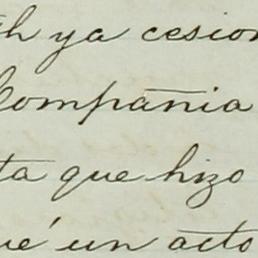 th ya cesion
Compañia
ta que hizo
ué un acto